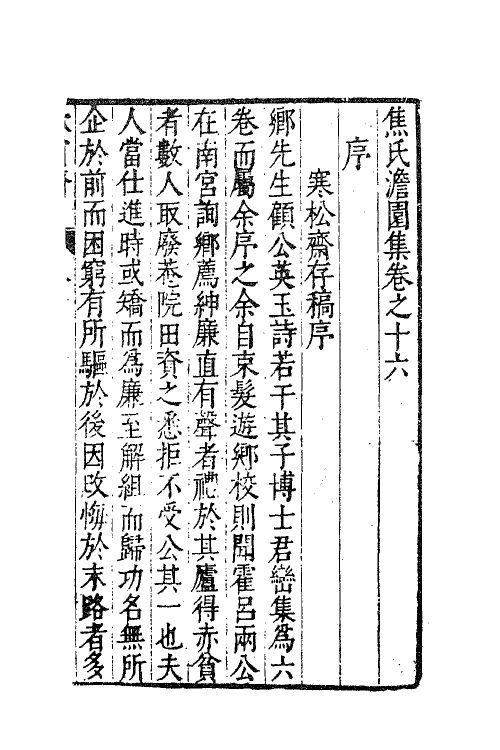 焦氏澹園集卷之十六
序
寒松齋存稿序
鄉先生顧公英玉詩若干其子博士君巒集為六
卷而屬余序之余自束髮遊鄉校則聞霍呂兩公
在南宮詢鄉薦紳廉直有聲者禮於其廬得赤貧
者數人取廢菴院田資之悉拒不受公其一也夫
人當仕進時或矯而為廉至解組而歸功名無所
企於前而困窮有所驅於後因改悔於末路者多